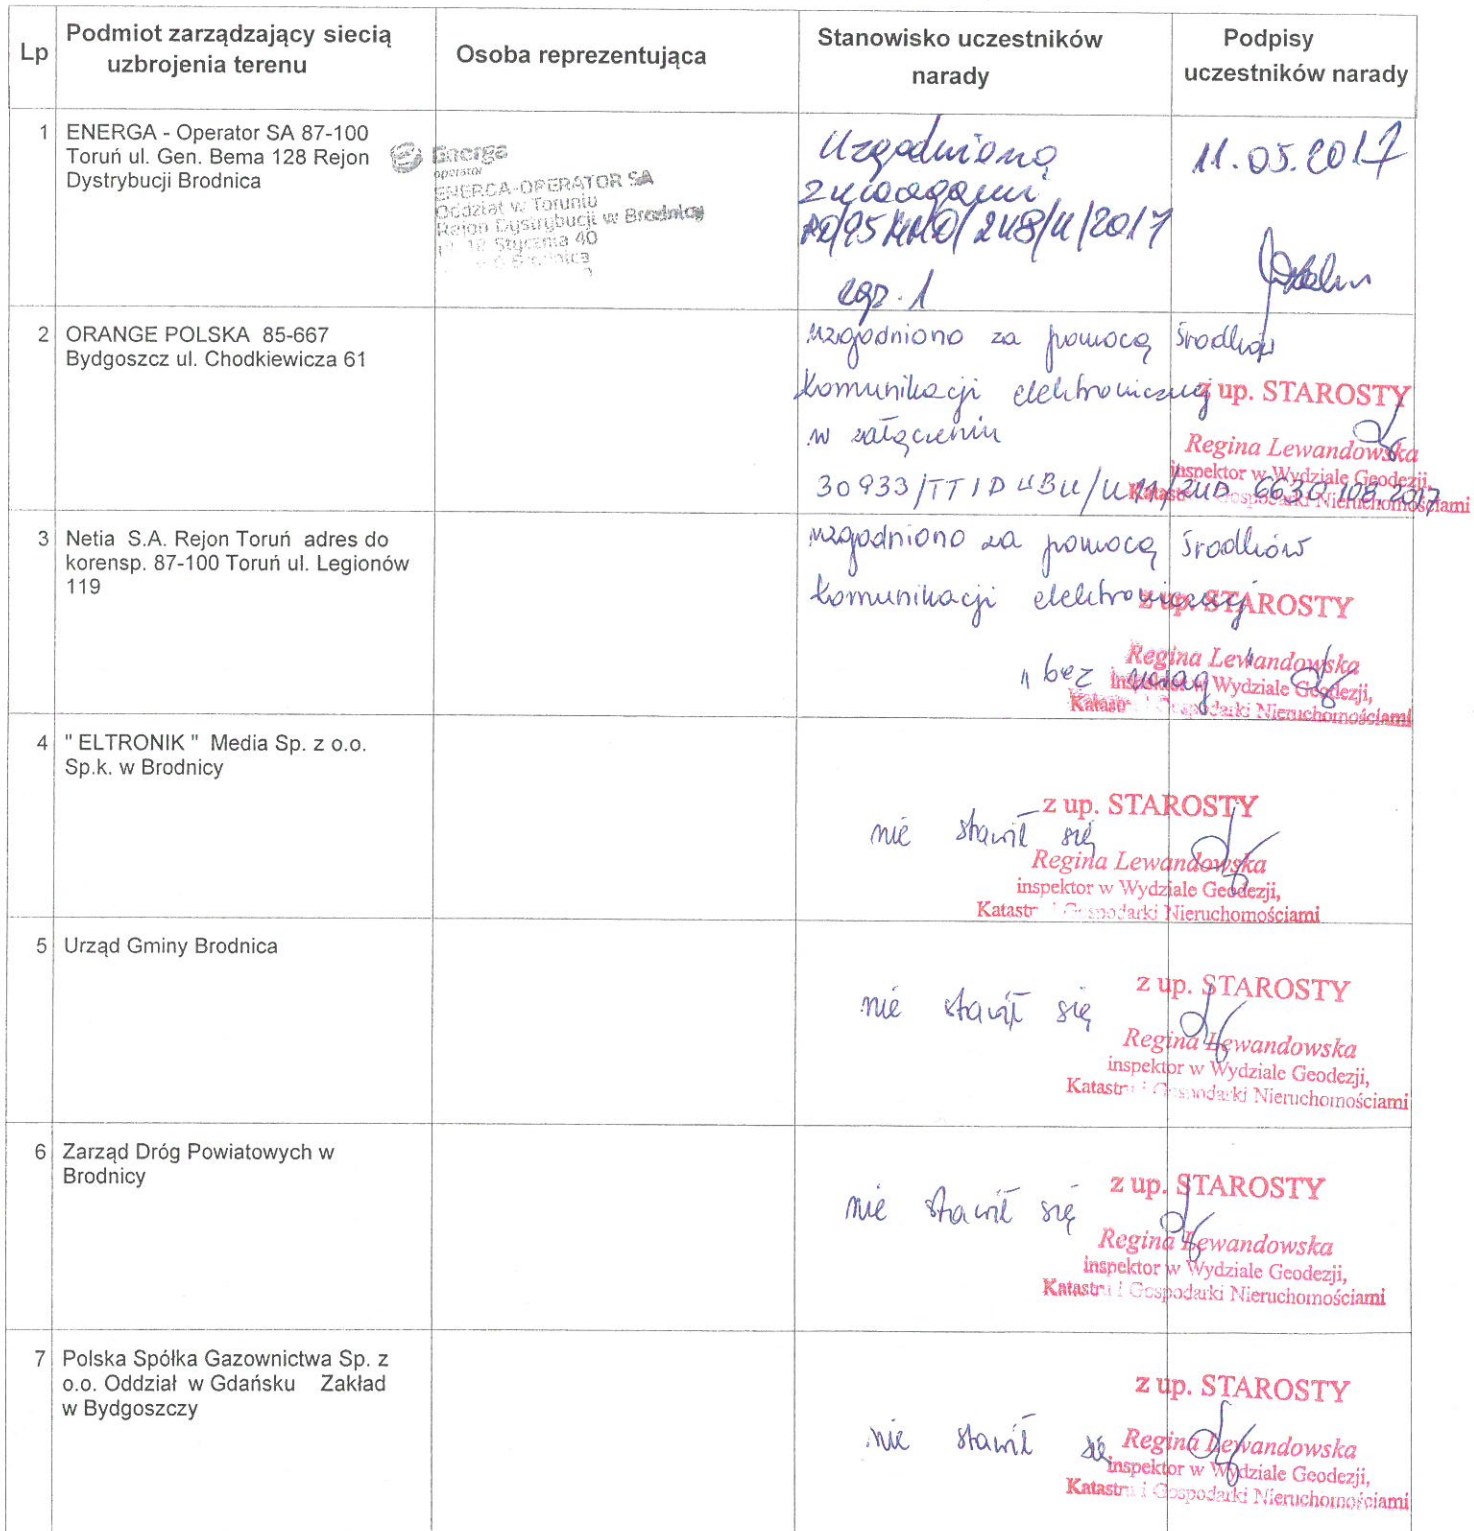 Lp
Podmiot zarządzający siecią
uzbrojenia terenu
Osoba reprezentująca
Stanowisko uczestników
narady
Podpisy
uczestników narady
1
ENERGA - Operator SA 87-100
Toruń ul. Gen. Bema 128 Rejon
Dystrybucji Brodnica
Energa
operator
ENERGA-OPERATOR SA
Oddział w Toruniu
Rejon Dystrybucji w Brodnicy
ul. 18 Stycznia 40
Uzgodniono
z uwagami
248/U/2017
egz. 1
11.05.2017
2
ORANGE POLSKA 85-667
Bydgoszcz ul. Chodkiewicza 61
uzgodniono za pomocą środków
komunikacji elektronicznej
w załączeniu
30933/TTIDUBU/U 6630.108.2017
z up. STAROSTY
Regina Lewandowska
inspektor w Wydziale Geodezji,
Katastru i Gospodarki Nieruchomościami
3
Netia S.A. Rejon Toruń adres do
korensp. 87-100 Toruń ul. Legionów
119
uzgodniono za pomocą środków
komunikacji elektronicznej
"bez uwag"
z up. STAROSTY
Regina Lewandowska
inspektor w Wydziale Geodezji,
Katastru i Gospodarki Nieruchomościami
4
" ELTRONIK " Media Sp. z o.o.
Sp.k. w Brodnicy
nie stawił się
z up. STAROSTY
Regina Lewandowska
inspektor w Wydziale Geodezji,
Katastru i Gospodarki Nieruchomościami
5
Urząd Gminy Brodnica
nie stawił się
z up. STAROSTY
Regina Lewandowska
inspektor w Wydziale Geodezji,
Katastru i Gospodarki Nieruchomościami
6
Zarząd Dróg Powiatowych w
Brodnicy
nie stawił się
z up. STAROSTY
Regina Lewandowska
inspektor w Wydziale Geodezji,
Katastru i Gospodarki Nieruchomościami
7
Polska Spółka Gazownictwa Sp. z
o.o. Oddział w Gdańsku Zakład
w Bydgoszczy
nie stawił się
z up. STAROSTY
Regina Lewandowska
inspektor w Wydziale Geodezji,
Katastru i Gospodarki Nieruchomościami